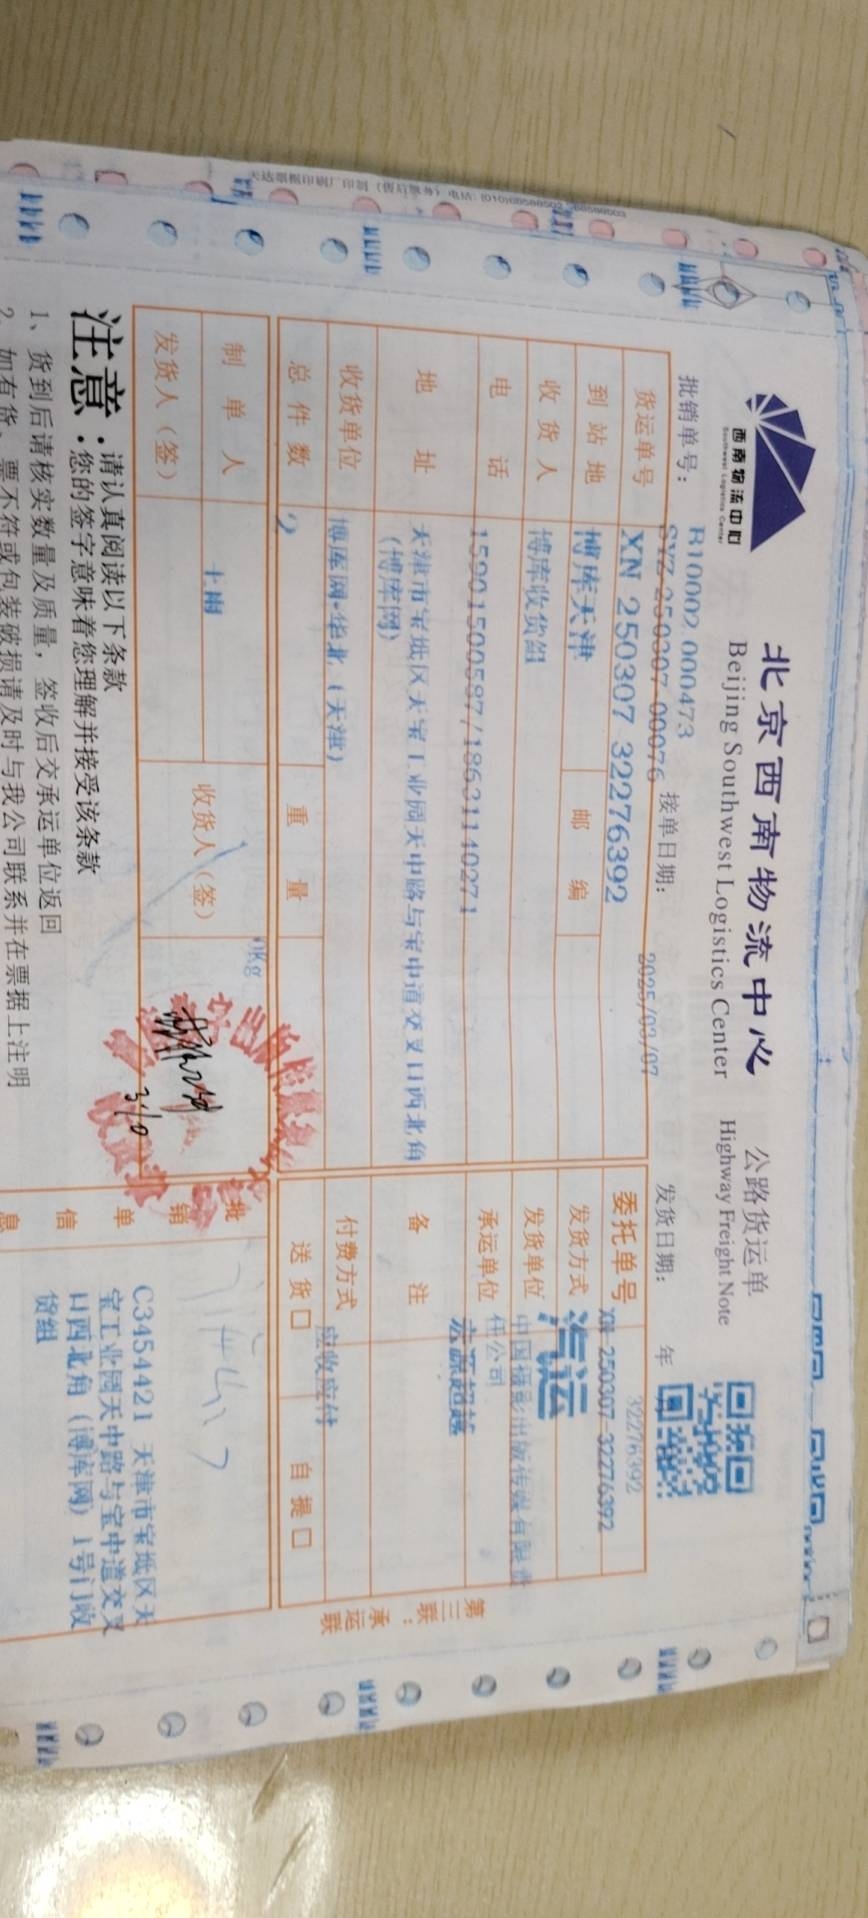 西南物流中心
Southwest Logistics Center
北京西南物流中心
Beijing Southwest Logistics Center
公路货运单
Highway Freight Note
批销单号：
B10002 000473
SYZ 250307 00076
接单日期：
2025/03/07
发货日期：
年
货运单号
XN 250307 32276392
委托单号
32276392
XN 250307 32276392
到站地
博库天津
邮编
发货方式
汽运
收货人
博库收货组
发货单位
中国摄影出版传媒有限责
任公司
电话
15901500587/18631140271
承运单位
宏源超越
地址
天津市宝坻区天宝工业园天中路与宝中道交叉口西北角
(博库网)
备注
收货单位
博库网-华北（天津）
付费方式
应收应付
总件数
2
重量
0Kg
送货□
自提□
制单人
王雨
收货人（签）
发货人（签）
3/10
批销单信息
C3454421 天津市宝坻区天
宝工业园天中路与宝中道交叉
口西北角（博库网）1号门收
货组
第三联：承运联
注意：
请认真阅读以下条款
您的签字意味着您理解并接受该条款
1、货到后请核实数量及质量，签收后交承运单位返回
2、如有货、票不符或包装破损请及时与我公司联系并在票据上注明